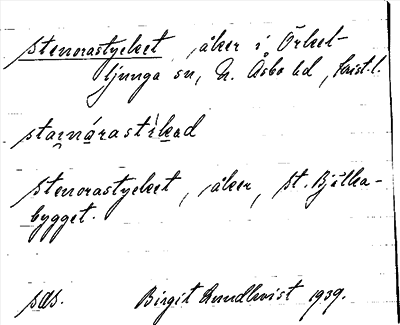 stenorastycket, åker i Örkel-
ljunga sn, N. Åsbo hd, Krist. l.
stenorastycket, åker, St. Bjälka-
bygget.
sds. Birgit Rundkvist 1939.